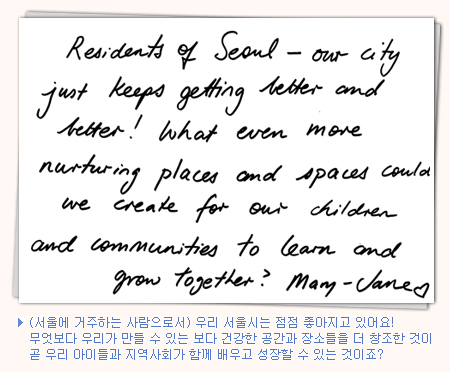 Residents of Seoul – our city
just keeps getting better and
better! What even more
nurturing places and spaces could
we create for our children
and communities to learn and
grow together? Mary-Jane♡
▶ (서울에 거주하는 사람으로서) 우리 서울시는 점점 좋아지고 있어요!
무엇보다 우리가 만들 수 있는 보다 건강한 공간과 장소들을 더 창조한 것이
곧 우리 아이들과 지역사회가 함께 배우고 성장할 수 있는 것이죠?